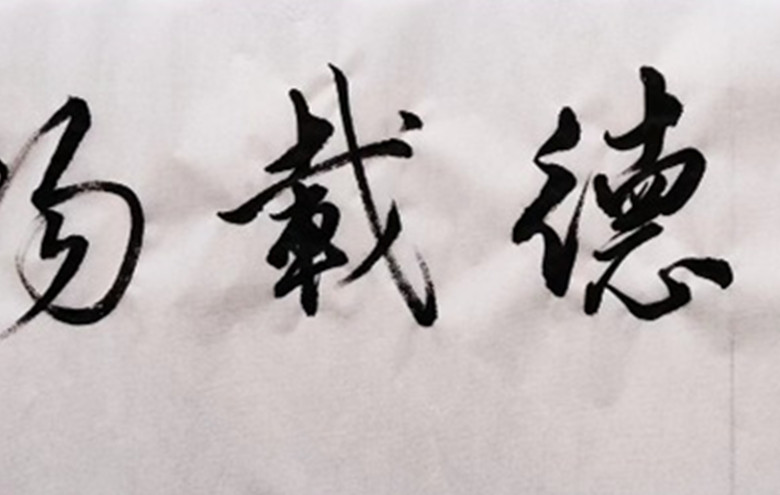 德載物